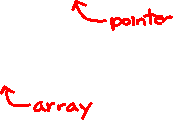 pointer
array